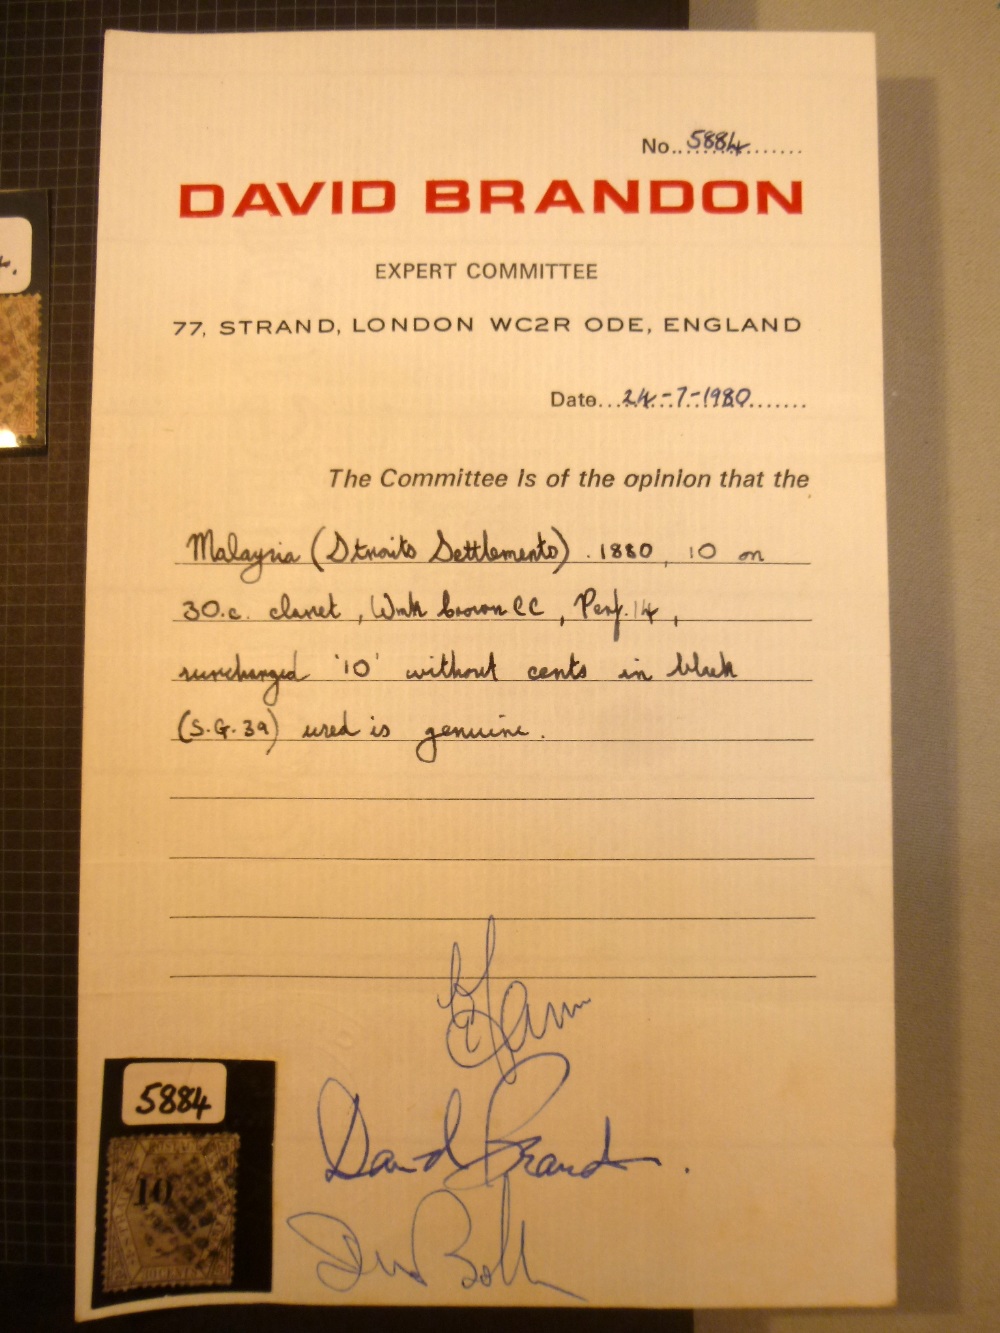 No..5884.......
DAVID BRANDON
EXPERT COMMITTEE
77, STRAND, LONDON WC2R ODE, ENGLAND
Date...24.-7-1980.......
The Committee is of the opinion that the
Malaysia (Straits Settlements). 1880, 10 on
30.c. claret, Wmk Crown CC, Perf. 14,
surcharged '10' without cents in black
(S.G. 39) used is genuine.
David Brandon.
5884
10